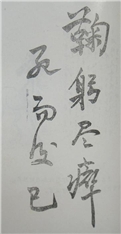 鞠躬尽瘁
死而後已